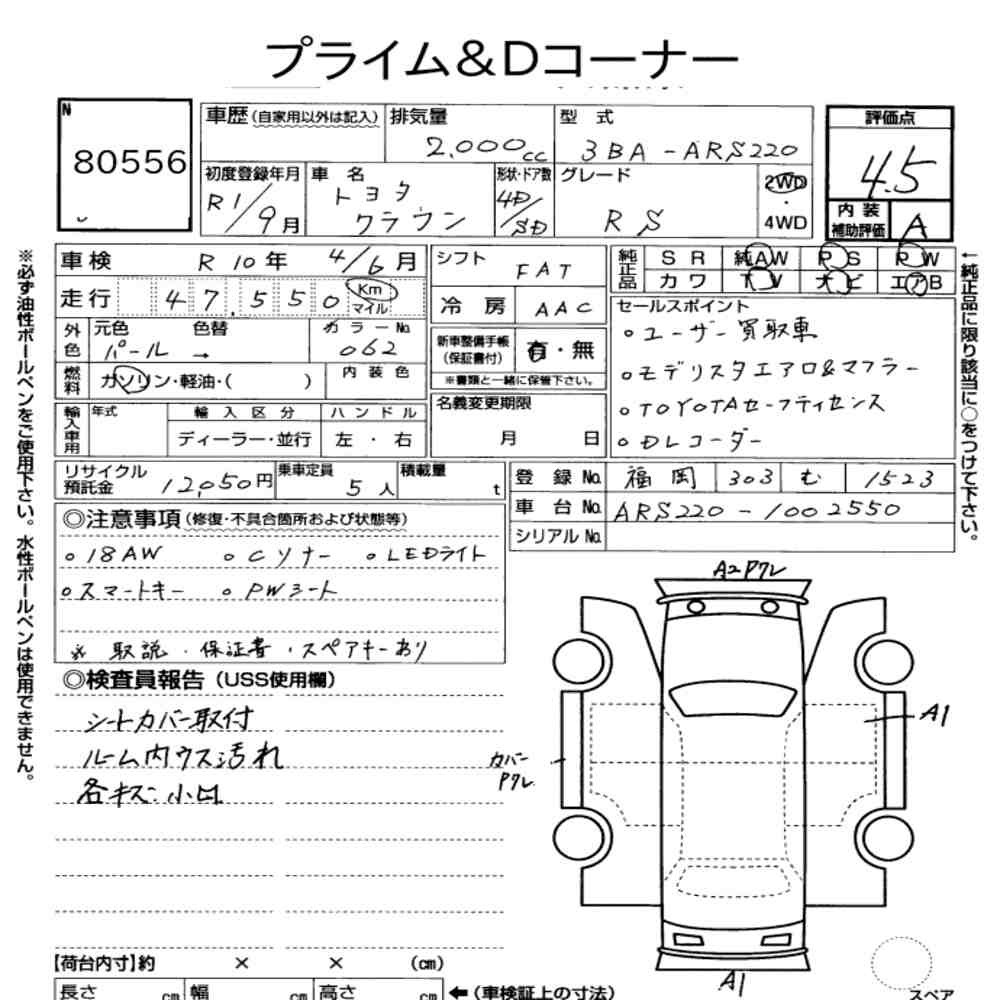 プライム&Dコーナー
N
80556
車歴(自家用以外は記入)
排気量
2,000cc
型 式
3BA-ARS220
評価点
4.5
初度登録年月
R1/9月
車 名
トヨタ
クラウン
形状・ドア数
4D/SD
グレード
RS
2WD
・
4WD
内 装
補助評価
A
車検
R 10年 4/6月
シフト
FAT
純正品
SR 純AW PS PW
カワ TV ナビ エアB
走行
47,550 Km
マイル
冷 房
AAC
セールスポイント
○ユーザー買取車
○モデリスタエアロ&マフラー
○TOYOTAセーフティセンス
○Dレコーダー
外色
元色
パール
色替
→
カラーNo.
062
新車整備手帳
(保証書付)
有・無
※書類と一緒に保管下さい。
燃料
ガソリン・軽油・( )
内装色
名義変更期限
月 日
輸入車用
年式
輸入区分
ディーラー・並行
ハンドル
左・右
リサイクル
預託金
12,050円
乗車定員
5人
積載量
t
登録No.
福岡 303 む 1523
車台No.
ARS220-1002550
シリアルNo.
◎注意事項(修復・不具合箇所および状態等)
○18AW ○Cソナー ○LEDライト
○スマートキー ○PWシート
※ 取説・保証書・スペアキーあり
◎検査員報告(USS使用欄)
シートカバー取付
ルーム内ウス汚れ
各キズ・小凹
A2Pワレ
A1
カバー
Pワレ
A1
【荷台内寸】約 × × (cm)
長さ cm 幅 cm 高さ cm
←(車検証上の寸法)
スペア
※必ず油性ボールペンをご使用下さい。水性ボールペンは使用できません。
←純正品に限り該当に○をつけて下さい。